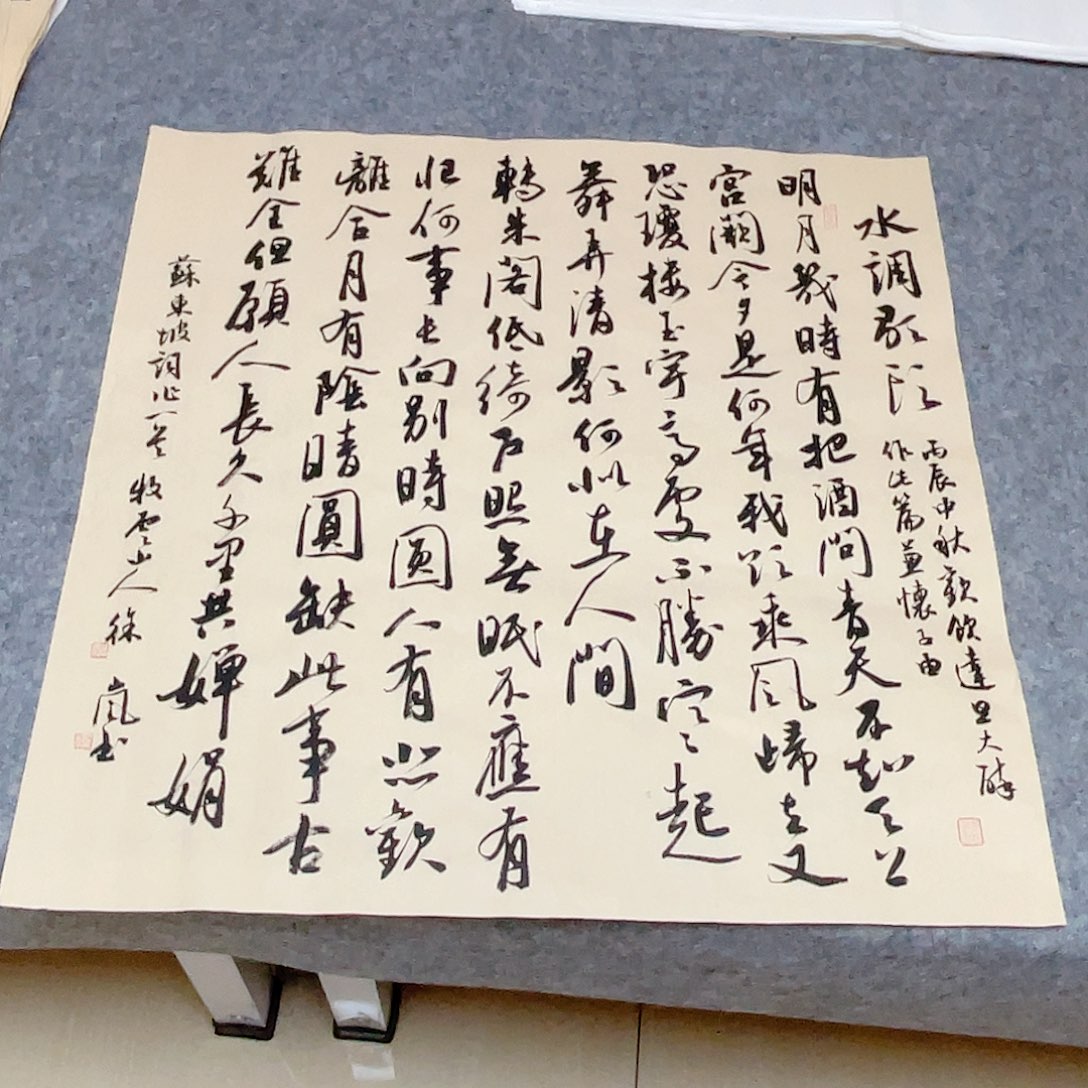 水調歌頭
丙辰中秋歡飲達旦大醉
作此篇兼懷子由
明月幾時有把酒問青天不知天上
宮闕今夕是何年我欲乘風歸去又
恐瓊樓玉宇高處不勝寒起
舞弄清影何似在人間
轉朱閣低綺戶照無眠不應有
恨何事長向別時圓人有悲歡
離合月有陰晴圓缺此事古
難全但願人長久千里共嬋娟
蘇東坡詞作一首 牧雲山人 徐嵐書